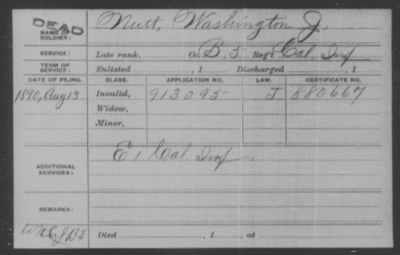 DEAD
NAME OF SOLDIER: Nutt, Washington J.
SERVICE: Late rank, Co. B, 5 Reg't Cal. Inf
TERM OF SERVICE: Enlisted , 1 Discharged , 1
DATE OF FILING. CLASS. APPLICATION NO. LAW. CERTIFICATE NO.
1890, Aug 13 Invalid, 913095 J 880667
Widow,
Minor,
ADDITIONAL SERVICES: E 1 Cal Inf.
REMARKS:
Died , 1 , at